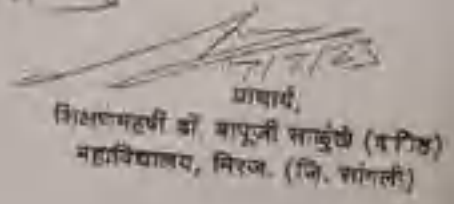 प्राचार्य,
शिक्षणमहर्षी डॉ. बापूजी साळुंखे (कनिष्ठ)
महाविद्यालय, मिरज. (जि. सांगली)